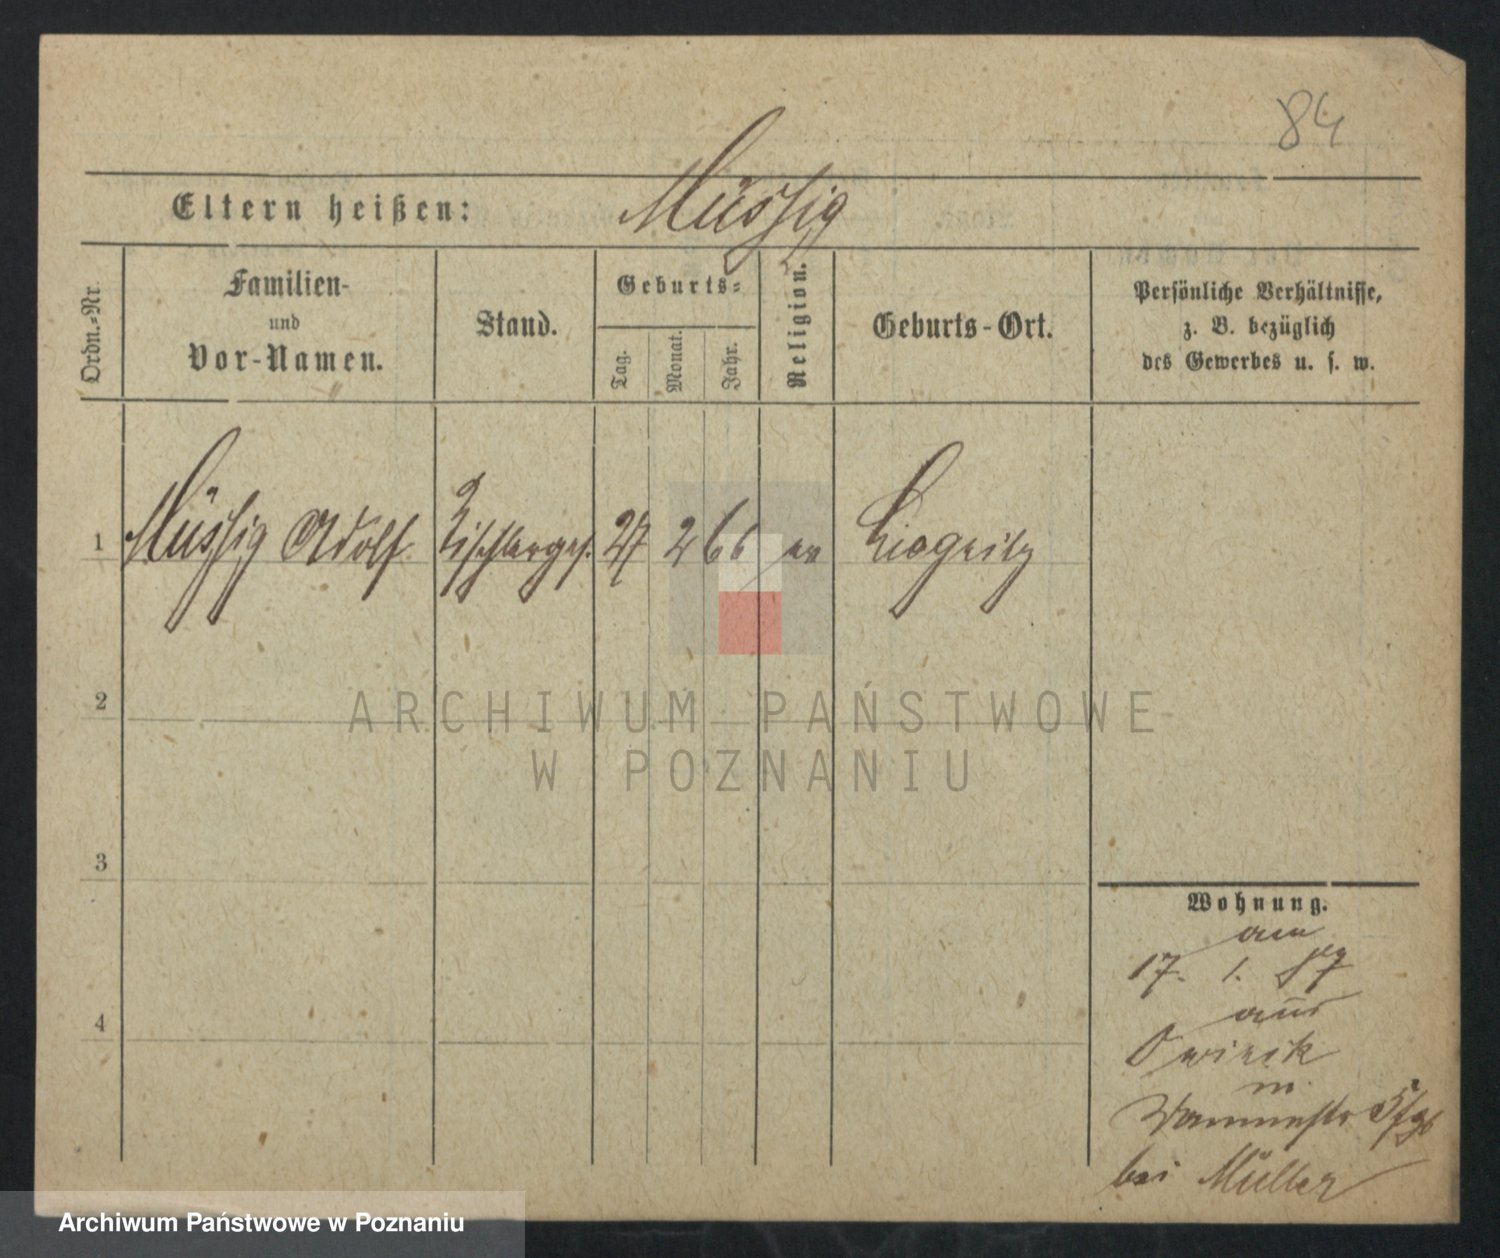 84
Eltern heißen: Müssig
Ordn.-Nr.
Familien-
und
Vor-Namen.
Stand.
Geburts-
Tag.
Monat.
Jahr.
Religion.
Geburts-Ort.
Persönliche Verhältnisse,
z. B. bezüglich
des Gewerbes u. s. w.
1 Müssig Adolf Tischlerges. 27 2 66 ev Liegnitz
2
3
4
Wohnung.
am
17. 1. 87
aus
Owinsk
n.
bei Müller
ARCHIWUM PAŃSTWOWE
W POZNANIU
Archiwum Państwowe w Poznaniu